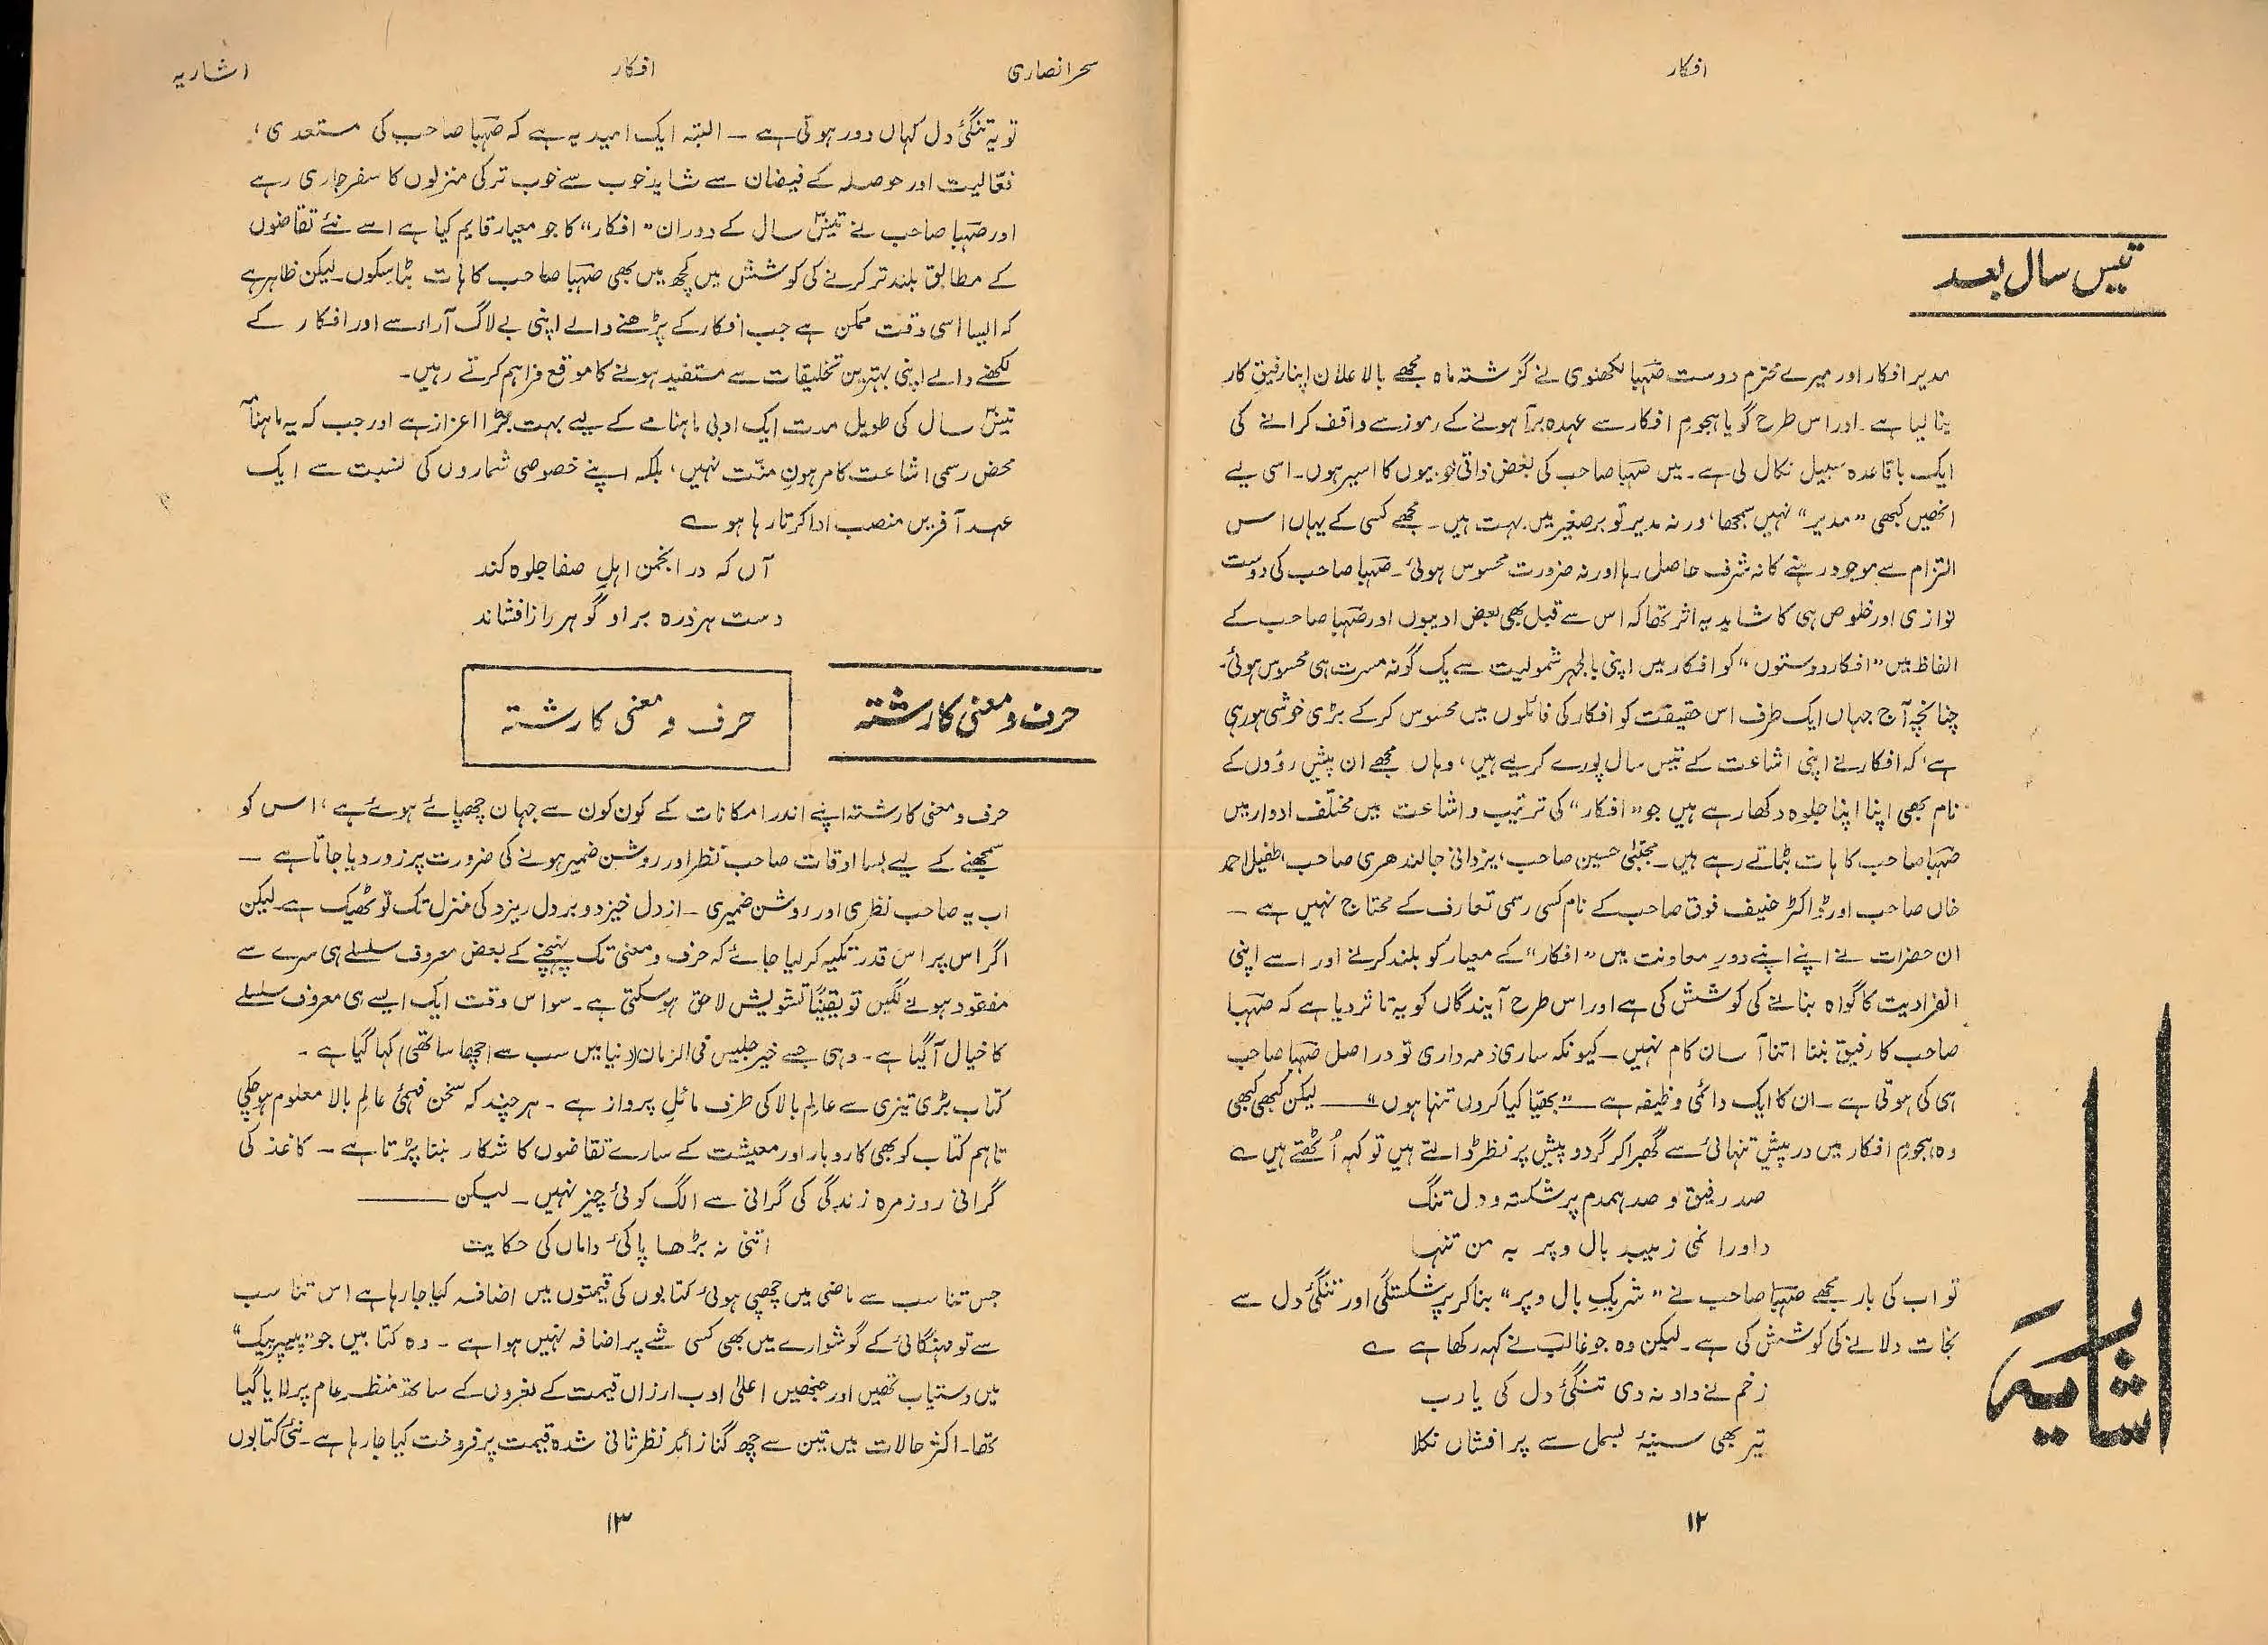 افکار
تیس سال بعد
مدیر افکار اور میرے محترم دوست صہبا لکھنوی نے گزشتہ ماہ مجھے بالاعلان اپنا رفیقِ کار
بنا لیا ہے۔ اور اس طرح گویا ہجومِ افکار سے عہدہ برآ ہونے کے رموز سے واقف کرانے کی
ایک باقاعدہ سبیل نکال لی ہے۔ میں صہبا صاحب کی بعض ذاتی خوبیوں کا اسیر ہوں۔ اسی لیے
انھیں کبھی "مدیر" نہیں سمجھا، ورنہ مدیر تو برصغیر میں بہت ہیں۔ مجھے کسی کے یہاں اس
التزام سے موجود رہنے کا نہ شرف حاصل رہا اور نہ ضرورت محسوس ہوئی۔ صہبا صاحب کی دوست
نوازی اور خلوص ہی کا شاید یہ اثر تھا کہ اس سے قبل بھی بعض ادیبوں اور صہبا صاحب کے
الفاظ میں "افکار دوستوں" کو افکار میں اپنی بالجہر شمولیت سے یک گونہ مسرت ہی محسوس ہوئی۔
چنانچہ آج جہاں ایک طرف اس حقیقت کو افکار کی فائلوں میں محسوس کرکے بڑی خوشی ہو رہی
ہے کہ افکار نے اپنی اشاعت کے تیس سال پورے کر لیے ہیں، وہاں مجھے ان پیش رووں کے
نام بھی اپنا اپنا جلوہ دکھا رہے ہیں جو "افکار" کی ترتیب و اشاعت میں مختلف ادوار میں
صہبا صاحب کا ہات بٹاتے رہے ہیں۔ مجتبیٰ حسین صاحب، یزدانی جالندھری صاحب، طفیل احمد
خاں صاحب اور ڈاکٹر حنیف فوق صاحب کے نام کسی رسمی تعارف کے محتاج نہیں ہے ۔
ان حضرات نے اپنے اپنے دورِ معاونت میں "افکار" کے معیار کو بلند کرنے اور اسے اپنی
انفرادیت کا گواہ بنانے کی کوشش کی ہے اور اس طرح آیندگاں کو یہ تاثر دیا ہے کہ صہبا
صاحب کا رفیق بننا اتنا آسان کام نہیں۔ کیونکہ ساری ذمہ داری تو دراصل صہبا صاحب
ہی کی ہوتی ہے۔ ان کا ایک دائمی وظیفہ ہے ــــ "بھیّا کیا کروں تنہا ہوں" ــــ لیکن کبھی کبھی
وہ ہجومِ افکار میں درپیش تنہائی سے گھبرا کر گرد و پیش پر نظر ڈالتے ہیں تو کہہ اُٹھتے ہیں ؎
صد رفیق و صد ہمدم پر شکستہ و دل تنگ
داورا نمی زیبد بال و پر بہ من تنہا
تو اب کی بار مجھے صہبا صاحب نے "شریکِ بال و پر" بنا کر پر شکستگی اور تنگئ دل سے
نجات دلانے کی کوشش کی ہے۔ لیکن وہ جو غالب نے کہہ رکھا ہے ؎
زخم نے داد نہ دی تنگئ دل کی یارب
تیر بھی سینۂ بسمل سے پر افشاں نکلا
اشاریہ
۱۲
سحر انصاری
افکار
اشاریہ
تو یہ تنگئ دل کہاں دور ہوتی ہے ۔ البتہ ایک امید یہ ہے کہ صہبا صاحب کی مستعدی،
فعّالیت اور حوصلہ کے فیضان سے شاید خوب سے خوب تر کی منزلوں کا سفر جاری رہے
اور صہبا صاحب نے تیس سال کے دوران "افکار" کا جو معیار قایم کیا ہے اسے نئے تقاضوں
کے مطابق بلند تر کرنے کی کوشش میں کچھ میں بھی صہبا صاحب کا ہات بٹا سکوں۔ لیکن ظاہر ہے
کہ ایسا اسی وقت ممکن ہے جب افکار کے پڑھنے والے اپنی بے لاگ آراء سے اور افکار کے
لکھنے والے اپنی بہترین تخلیقات سے مستفید ہونے کا موقع فراہم کرتے رہیں۔
تیس سال کی طویل مدت ایک ادبی ماہنامے کے لیے بہت بڑا اعزاز ہے اور جب کہ یہ ماہنامہ
محض رسمی اشاعت کا مرہونِ منّت نہیں، بلکہ اپنے خصوصی شماروں کی نسبت سے ایک
عہد آفریں منصب ادا کرتا رہا ہو ؎
آں کہ در انجمن اہلِ صفا جلوہ کند
دست ہر ذرہ بر او گوہر راز افشاند
حرف و معنی کا رشتہ
حرف و معنی کا رشتہ
حرف و معنی کا رشتہ اپنے اندر امکانات کے کون کون سے جہان چھپائے ہوئے ہے، اس کو
سمجھنے کے لیے بسا اوقات صاحب نظر اور روشن ضمیر ہونے کی ضرورت پر زور دیا جاتا ہے ۔
اب یہ صاحب نظری اور روشن ضمیری ۔ از دل خیزد و بر دل ریزد کی منزل تک تو ٹھیک ہے۔ لیکن
اگر اس پر اس قدر تکیہ کر لیا جائے کہ حرف و معنی تک پہنچنے کے بعض معروف سلسلے ہی سرے سے
مفقود ہونے لگیں تو یقیناً تشویش لاحق ہو سکتی ہے۔ سو اس وقت ایک ایسے ہی معروف سلسلے
کا خیال آ گیا ہے۔ وہی جسے خیر جلیس فی الزمان (دنیا میں سب سے اچھا ساتھی) کہا گیا ہے ۔
کتاب بڑی تیزی سے عالمِ بالا کی طرف مائلِ پرواز ہے ۔ ہر چند کہ سخن فہمئ عالمِ بالا معلوم ہو چکی
تاہم کتاب کو بھی کاروبار اور معیشت کے سارے تقاضوں کا شکار بننا پڑتا ہے ۔ کاغذ کی
گرانی روزمرہ زندگی کی گرانی سے الگ کوئی چیز نہیں ۔ لیکن ــــــ
اتنی نہ بڑھا پاکیٔ داماں کی حکایت
جس تناسب سے ماضی میں چھپی ہوئی کتابوں کی قیمتوں میں اضافہ کیا جا رہا ہے اس تناسب
سے تو مہنگائی کے گوشوارے میں بھی کسی شے پر اضافہ نہیں ہوا ہے ۔ وہ کتابیں جو "پیپر بیک"
میں دستیاب تھیں اور جنھیں اعلیٰ ادب ارزاں قیمت کے نعروں کے ساتھ منظرِ عام پر لایا گیا
تھا۔ اکثر حالات میں تین سے چھ گنا زائد نظر ثانی شدہ قیمت پر فروخت کیا جا رہا ہے۔ نئی کتابوں
۱۳